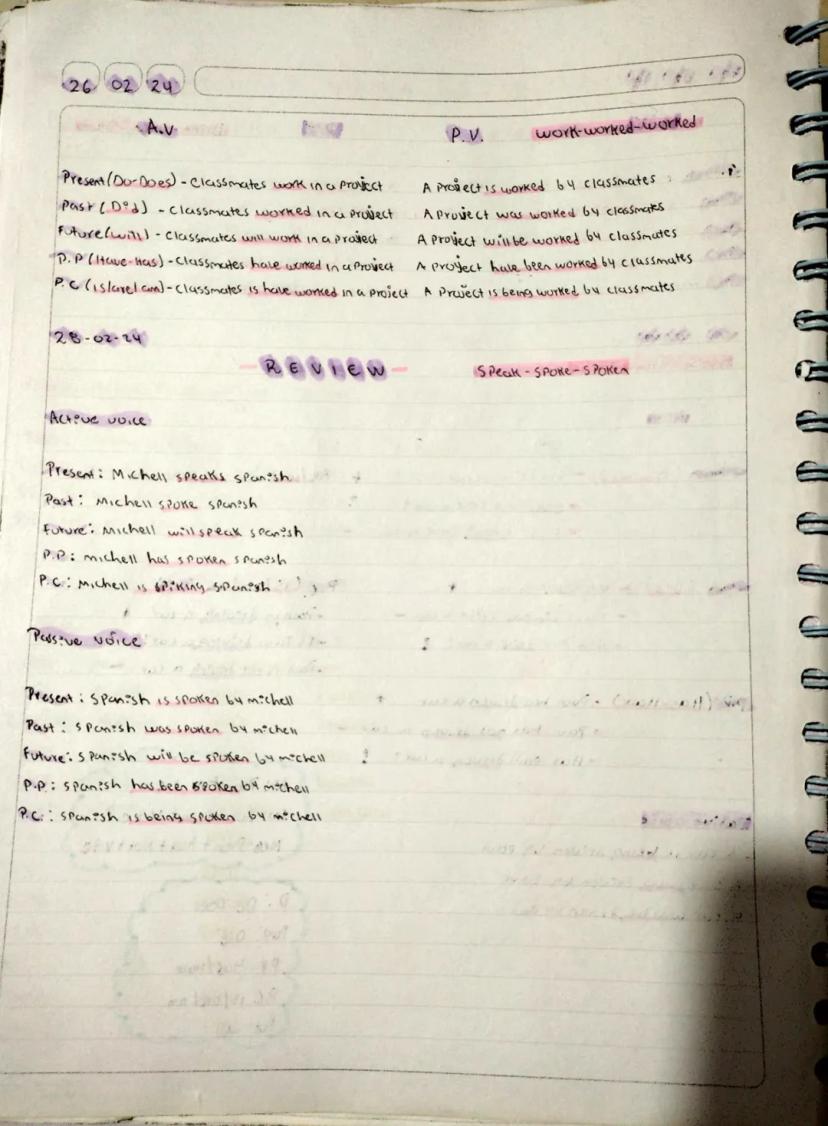 26 02 24
A.V P.V. work-worked-worked
Present (Do-Does) - Classmates work in a Project A Project is worked by classmates
Past (Did) - Classmates worked in a Project A Project was worked by classmates
Future (will) - Classmates will work in a Project A Project will be worked by classmates
P.P (Have-Has) - Classmates have worked in a Project A Project have been worked by classmates
P.C (is/are/am) - Classmates is have worked in a Project A Project is being worked by classmates
28-02-24
- REVIEW - Speak-spoke-spoken
Active voice
Present: Michell speaks spanish
Past: Michell spoke spanish
Future: Michell will speak spanish
P.P: michell has spoken spanish
P.C: Michell is spiking spanish
Passive voice
Present: Spanish is spoken by michell
Past: Spanish was spoken by michell
Future: Spanish will be spoken by michell
P.P: Spanish has been spoken by michell
P.C.: Spanish is being spoken by michell